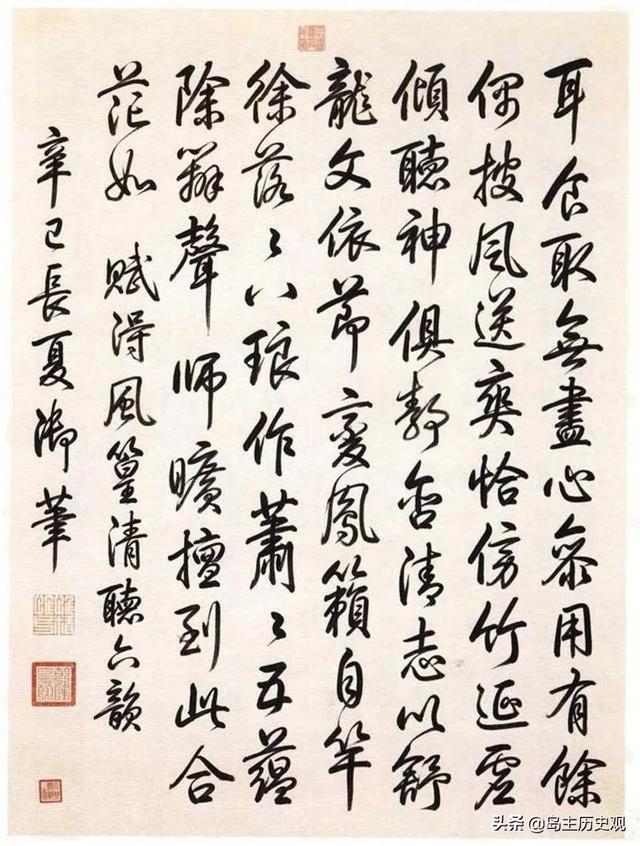 耳食取無盡心齋用有餘
偶披風送爽恰傍竹延虛
傾聽神俱靜含清志以舒
龍文依節變鳳籟自竿
徐落〻八琅作蕭〻五蘊
除辨聲師曠擅到此合
茫如 賦得風篁清聽六韻
辛巳長夏御筆
头条 @岛主历史观